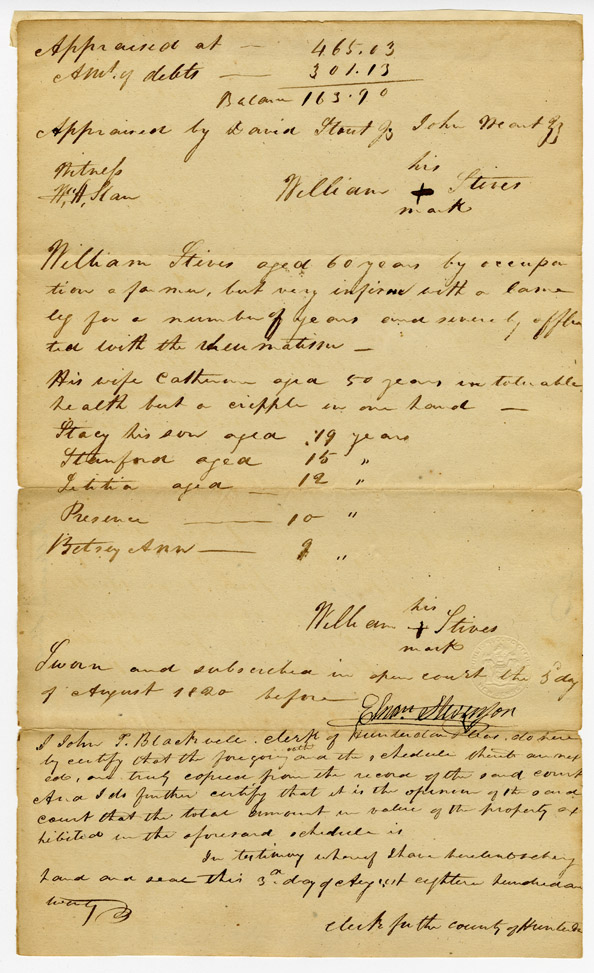 Appraised at — 465.03
Amt. of debts — 301.13
Balan 163.90
Appraised by David Stout & John Mont
Witness
William his + mark Stives
William Stives aged 60 years by occupa
tion a farmer, but very infirm with a lame
leg for a number of years and severely afflic
ted with the rheumatism —
His wife Catherine aged 50 years in tolerable
health but a cripple in one hand —
Stacy his son aged 19 years
Stanford aged 15 "
Letitia aged — 12 "
Presence — 10 "
Betsey Ann — "
William his + mark Stives
Sworn and subscribed in open court the 5 day
of August 1820 before
Stevenson
I John T. Blackwell clerk of Hunterdon do here
by certify that the foregoing oath and the schedule thereto annex
ed, are truly copied from the record of the said court
And I do further certify that it is the opinion of the said
court that the total amount in value of the property ex
hibited in the aforesaid schedule is
In testimony whereof I have hereunto set my
hand and seal this 3rd day of August eighteen hundred an
twenty
clerk for the county of Hunterdo